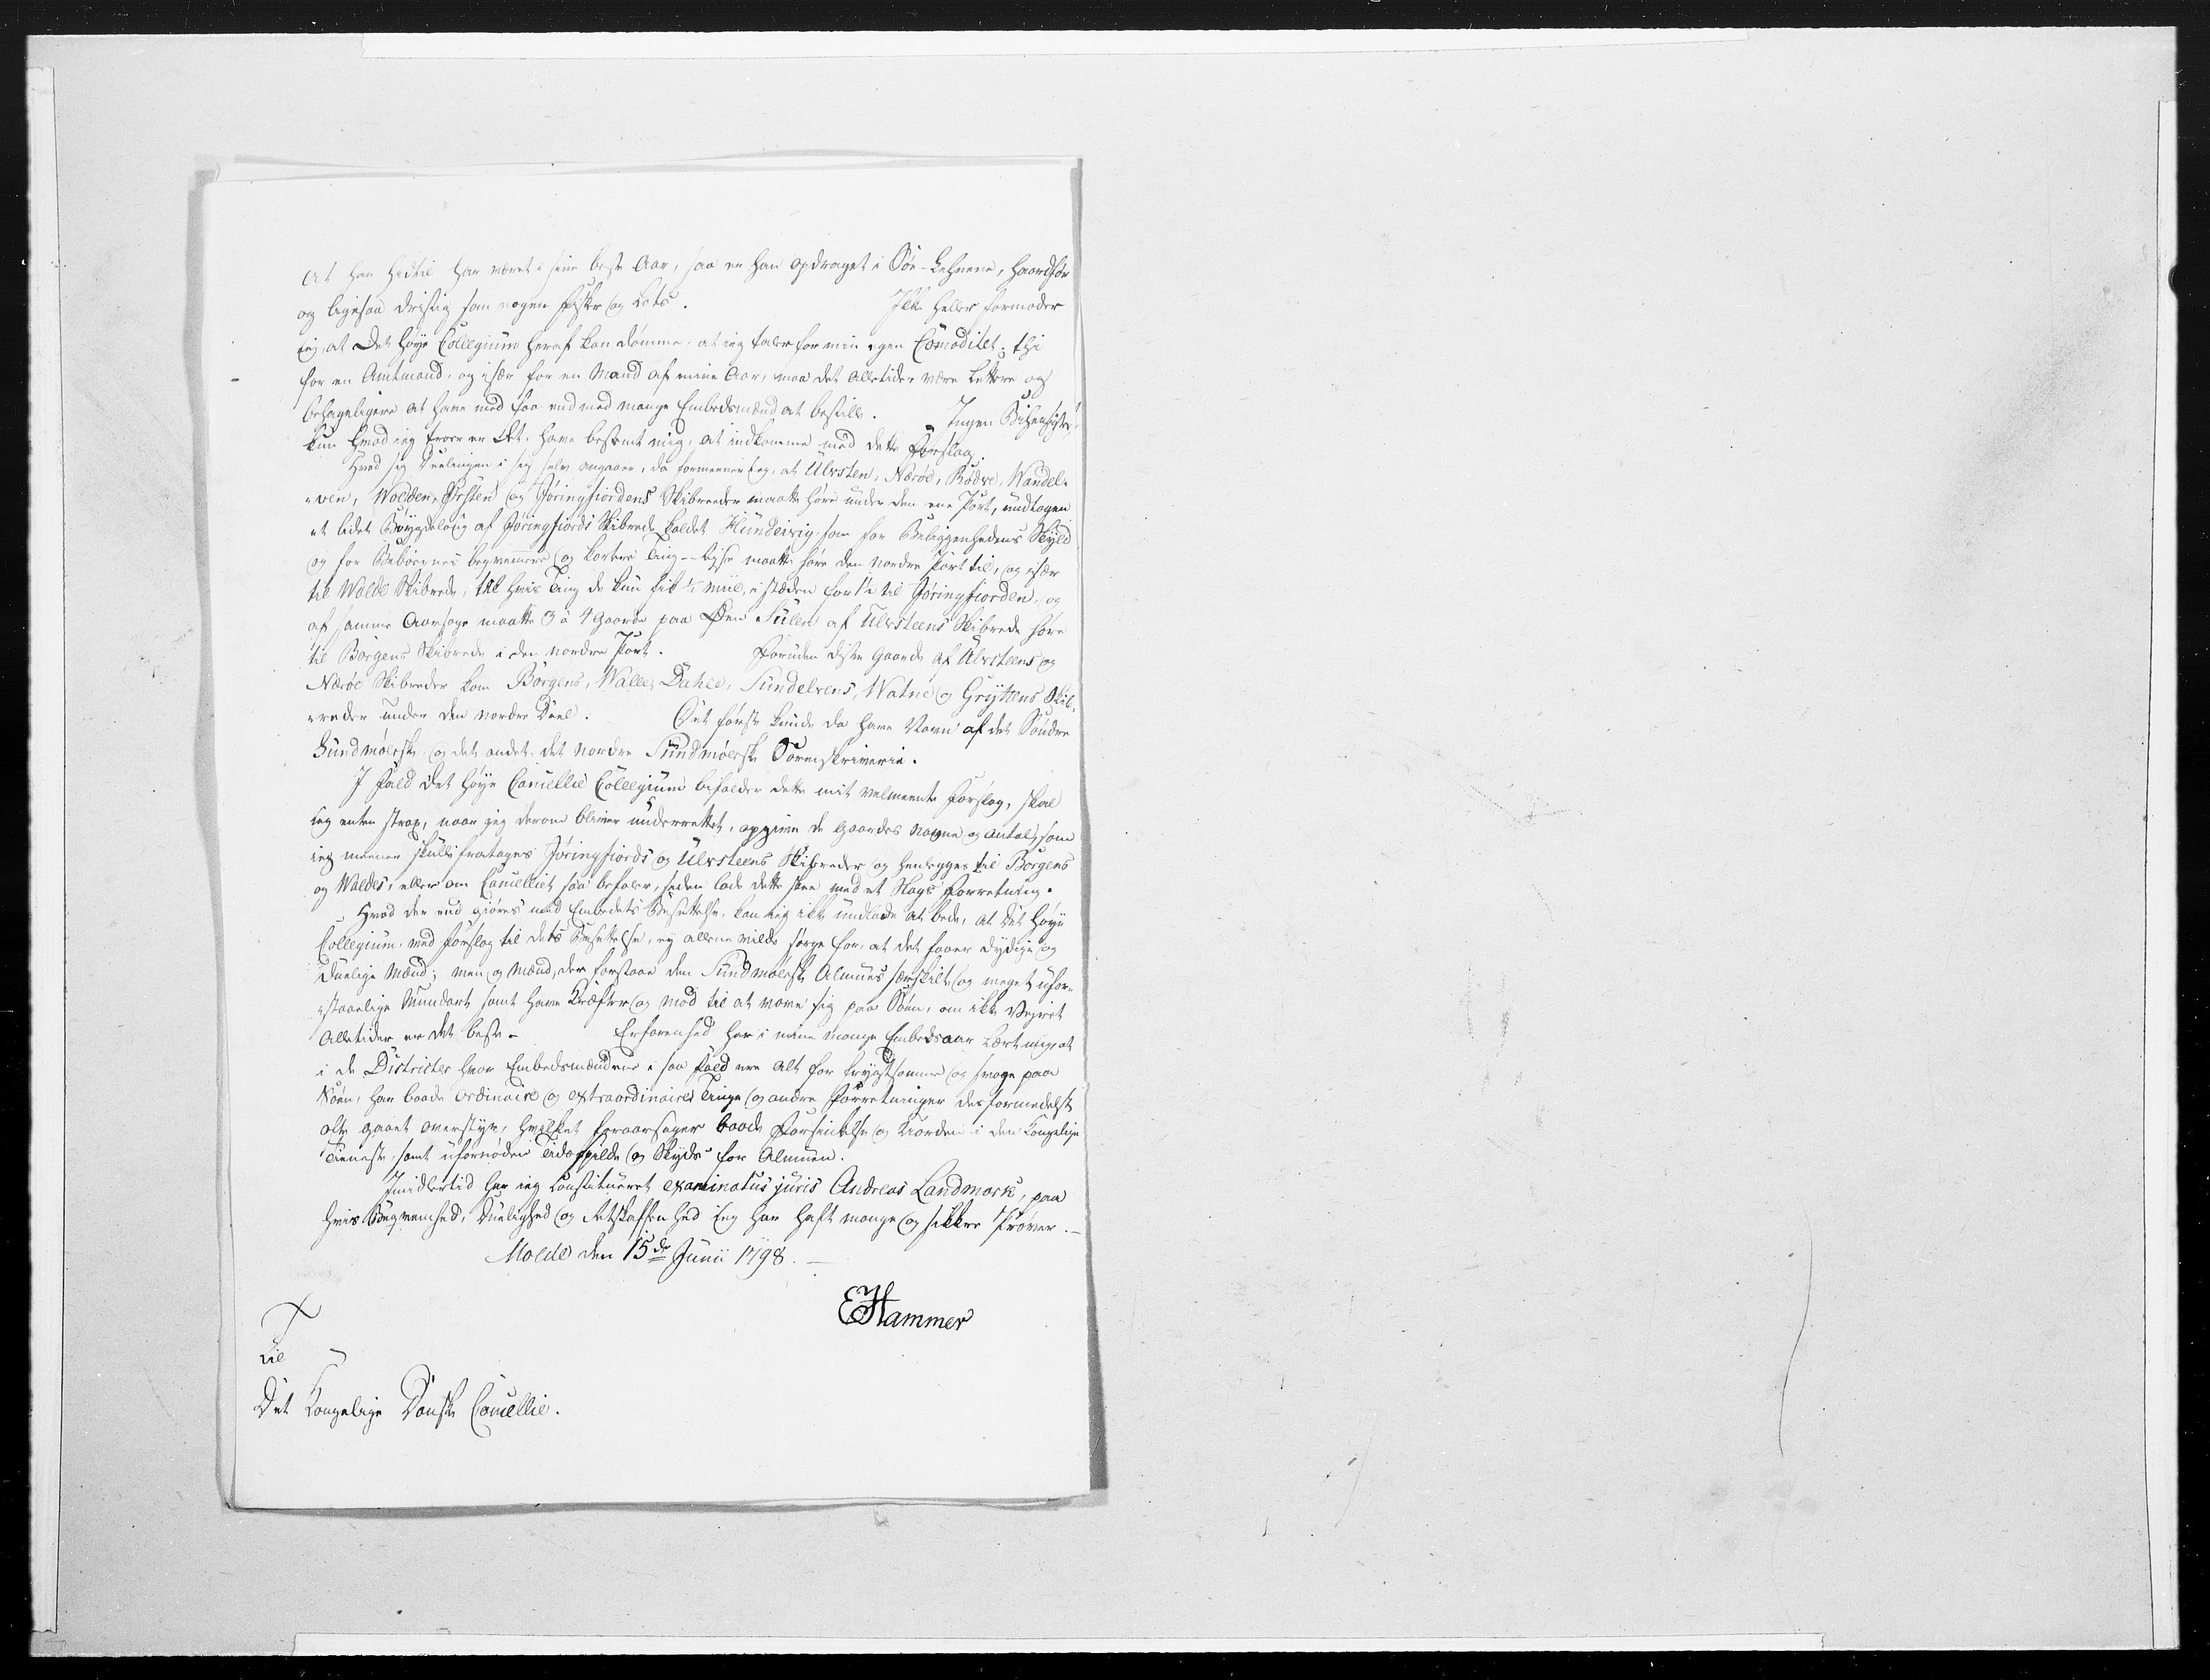 At han hidtil har været i sine beste Aar, saa er han opdraget i Søe-Lehnene, haardfør
og ligesaa dristig som nogen Fisker og Lods. Ikke heller formoder
jeg, at Det høye Collegium heraf kan dømme, at jeg taler for min egen Comoditet; thi
for en Amtmand, og især for en Mand af mine Aar, maa det alletider være lettere og
behageligere at have med faa end med mange Embedsmænd at bestille. Ingen Bihensigter,
kun hvad jeg troer er Ret, have bestemt mig, at indkomme med dette Forslag.
Hvad sig Deelingen i sig selv angaaer, da formeener jeg, at Ulvsten, Nærøe, Rødve, Wandel-
-ven, Wolden, Ørsten og Jøringfiordens Skibreder maatte høre under den ene Part, undtagen
et lidet Bøygdelaug af Jøringfiords Skibrede kaldet Hundeivig, som for Beliggenhedens Skyld
og for Beboernes beqvemmere og kortere Ting-Reyse maatte høre den nordre Part til, og især
til Walde Skibrede, till hvis Ting de kun fik 1/2 Miil, i stæden for 1 1/2 til Jøringfiorden, og
af samme Aarsage maatte 3 à 4 Gaarde paa Øen Sulen af Ulvsteens Skibrede høre
til Borgens Skibrede i den nordre Part. Foruden disse Gaarde af Ulvsteens og
Nærøe Skibreder kom Borgens, Walle, Dahle, Sundelvens, Watne og Gryttens Skib-
-reder under den nordre Deel. Det første kunde da have Navn af det Søndre
Sundmøerske, og det andet, det nordre Sundmøerske Sorenskriverie.
I Fald det høye Cancellie Collegium bifalder dette mit velmeente Forslag, skal
jeg enten strax, naar jeg derom bliver underrettet, opgive de Gaardes Navne og Antal, som
jeg meener skulle fratages Jøringfiords og Ulvsteens Skibreder og henlegges til Borgens
og Waldes, eller om Cancelliet saa befaler, siden lade dette skee med et Slags Forretning.
Hvad der end giøres med Embedets Besættelse, kan jeg ikke undlade at bede, at Det høye
Collegium, med Forslag til dets Besættelse, ey allene vilde sørge for, at det faaer dydige og
duelige Mænd; men og Mænd, der forstaae den Sundmøerske Almues særskilte og meget ufor-
-staaelige Mundart samt have Kræfter og Mod til at vove sig paa Søen, om ikke Vejret
alletider er det beste. Erfarenhed har i mine mange Embedsaar lært mig, at
i de Districter hvor Embedsmændene i saa Fald ere alt for frygtsomme og svage paa
Søen, har baade ordinaire og extraordinaire Tinge og andre Forretninger desformedelst
ofte gaaet overstyr, hvilket foraarsager baade Forsinkelse og Uorden i den Kongelige
Tieneste, samt ufornøden Tidsspilde og Skyds for Almuen.
Imidlertid har jeg constitueret examinatus juris Andreas Landmark, paa
hvis Beqvemhed, Duelighed og Retskaffenhed jeg har haft mange og sikkre Prøver.
Molde den 15de Junii 1798.
EHammer
Til
Det Kongelige Danske Cancellie.